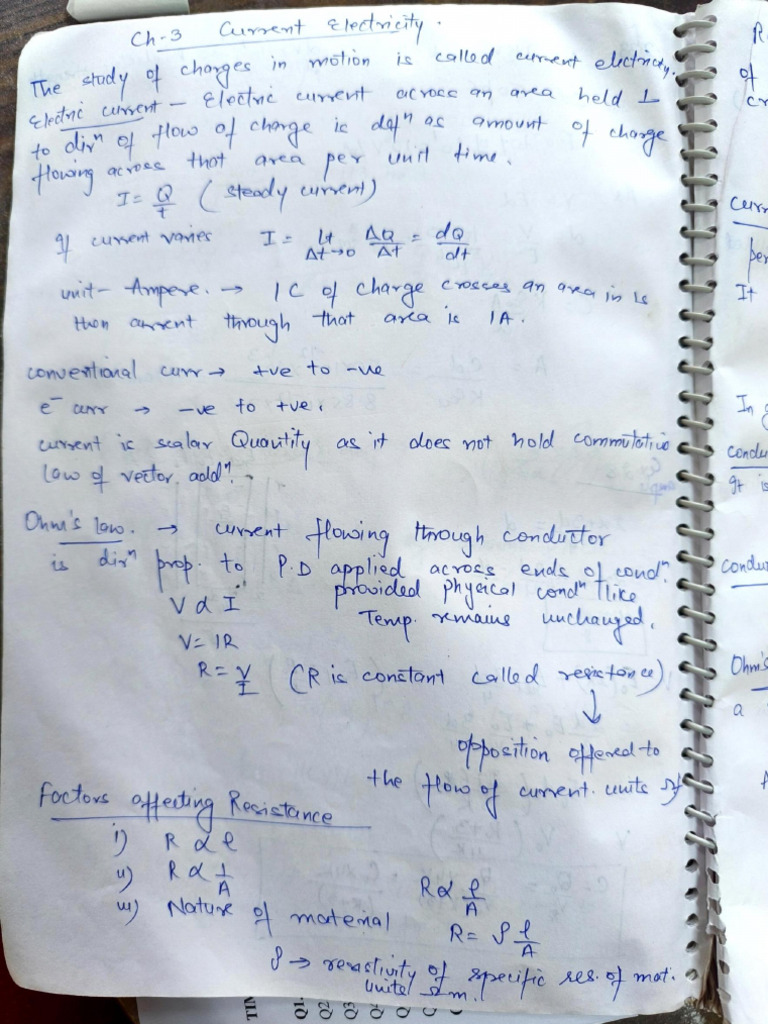 Ch-3 Current Electricity.
The study of charges in motion is called current electricity.
Electric current - Electric current across an area held ⊥
to dirⁿ of flow of charge is defⁿ as amount of charge
flowing across that area per unit time.
I = Q/t (steady current)
If current varies I = Lt Δt→0 ΔQ/Δt = dQ/dt
unit- Ampere. → 1C of charge crosses an area in 1s
then current through that area is 1A.
conventional curr → +ve to -ve
e⁻ curr → -ve to +ve.
current is scalar Quantity as it does not hold commutative
law of vector addⁿ.
Ohm's law. → current flowing through conductor
is dirⁿ prop. to P.D applied across ends of condⁿ.
provided physical condⁿ like
V ∝ I
Temp. remains unchanged.
V = IR
R = V/I (R is constant called resistance)
↓
opposition offered to
the flow of current. units
Factors affecting Resistance
i) R ∝ l
ii) R ∝ 1/A
R ∝ l/A
iii) Nature of material
R = ρ l/A
ρ → resistivity of specific res. of mat.
units Ωm.
R
of
Curr
per
It
In
condu
gt is
condu
Ohm's
a
TIM
Q1.
Q2
Q3